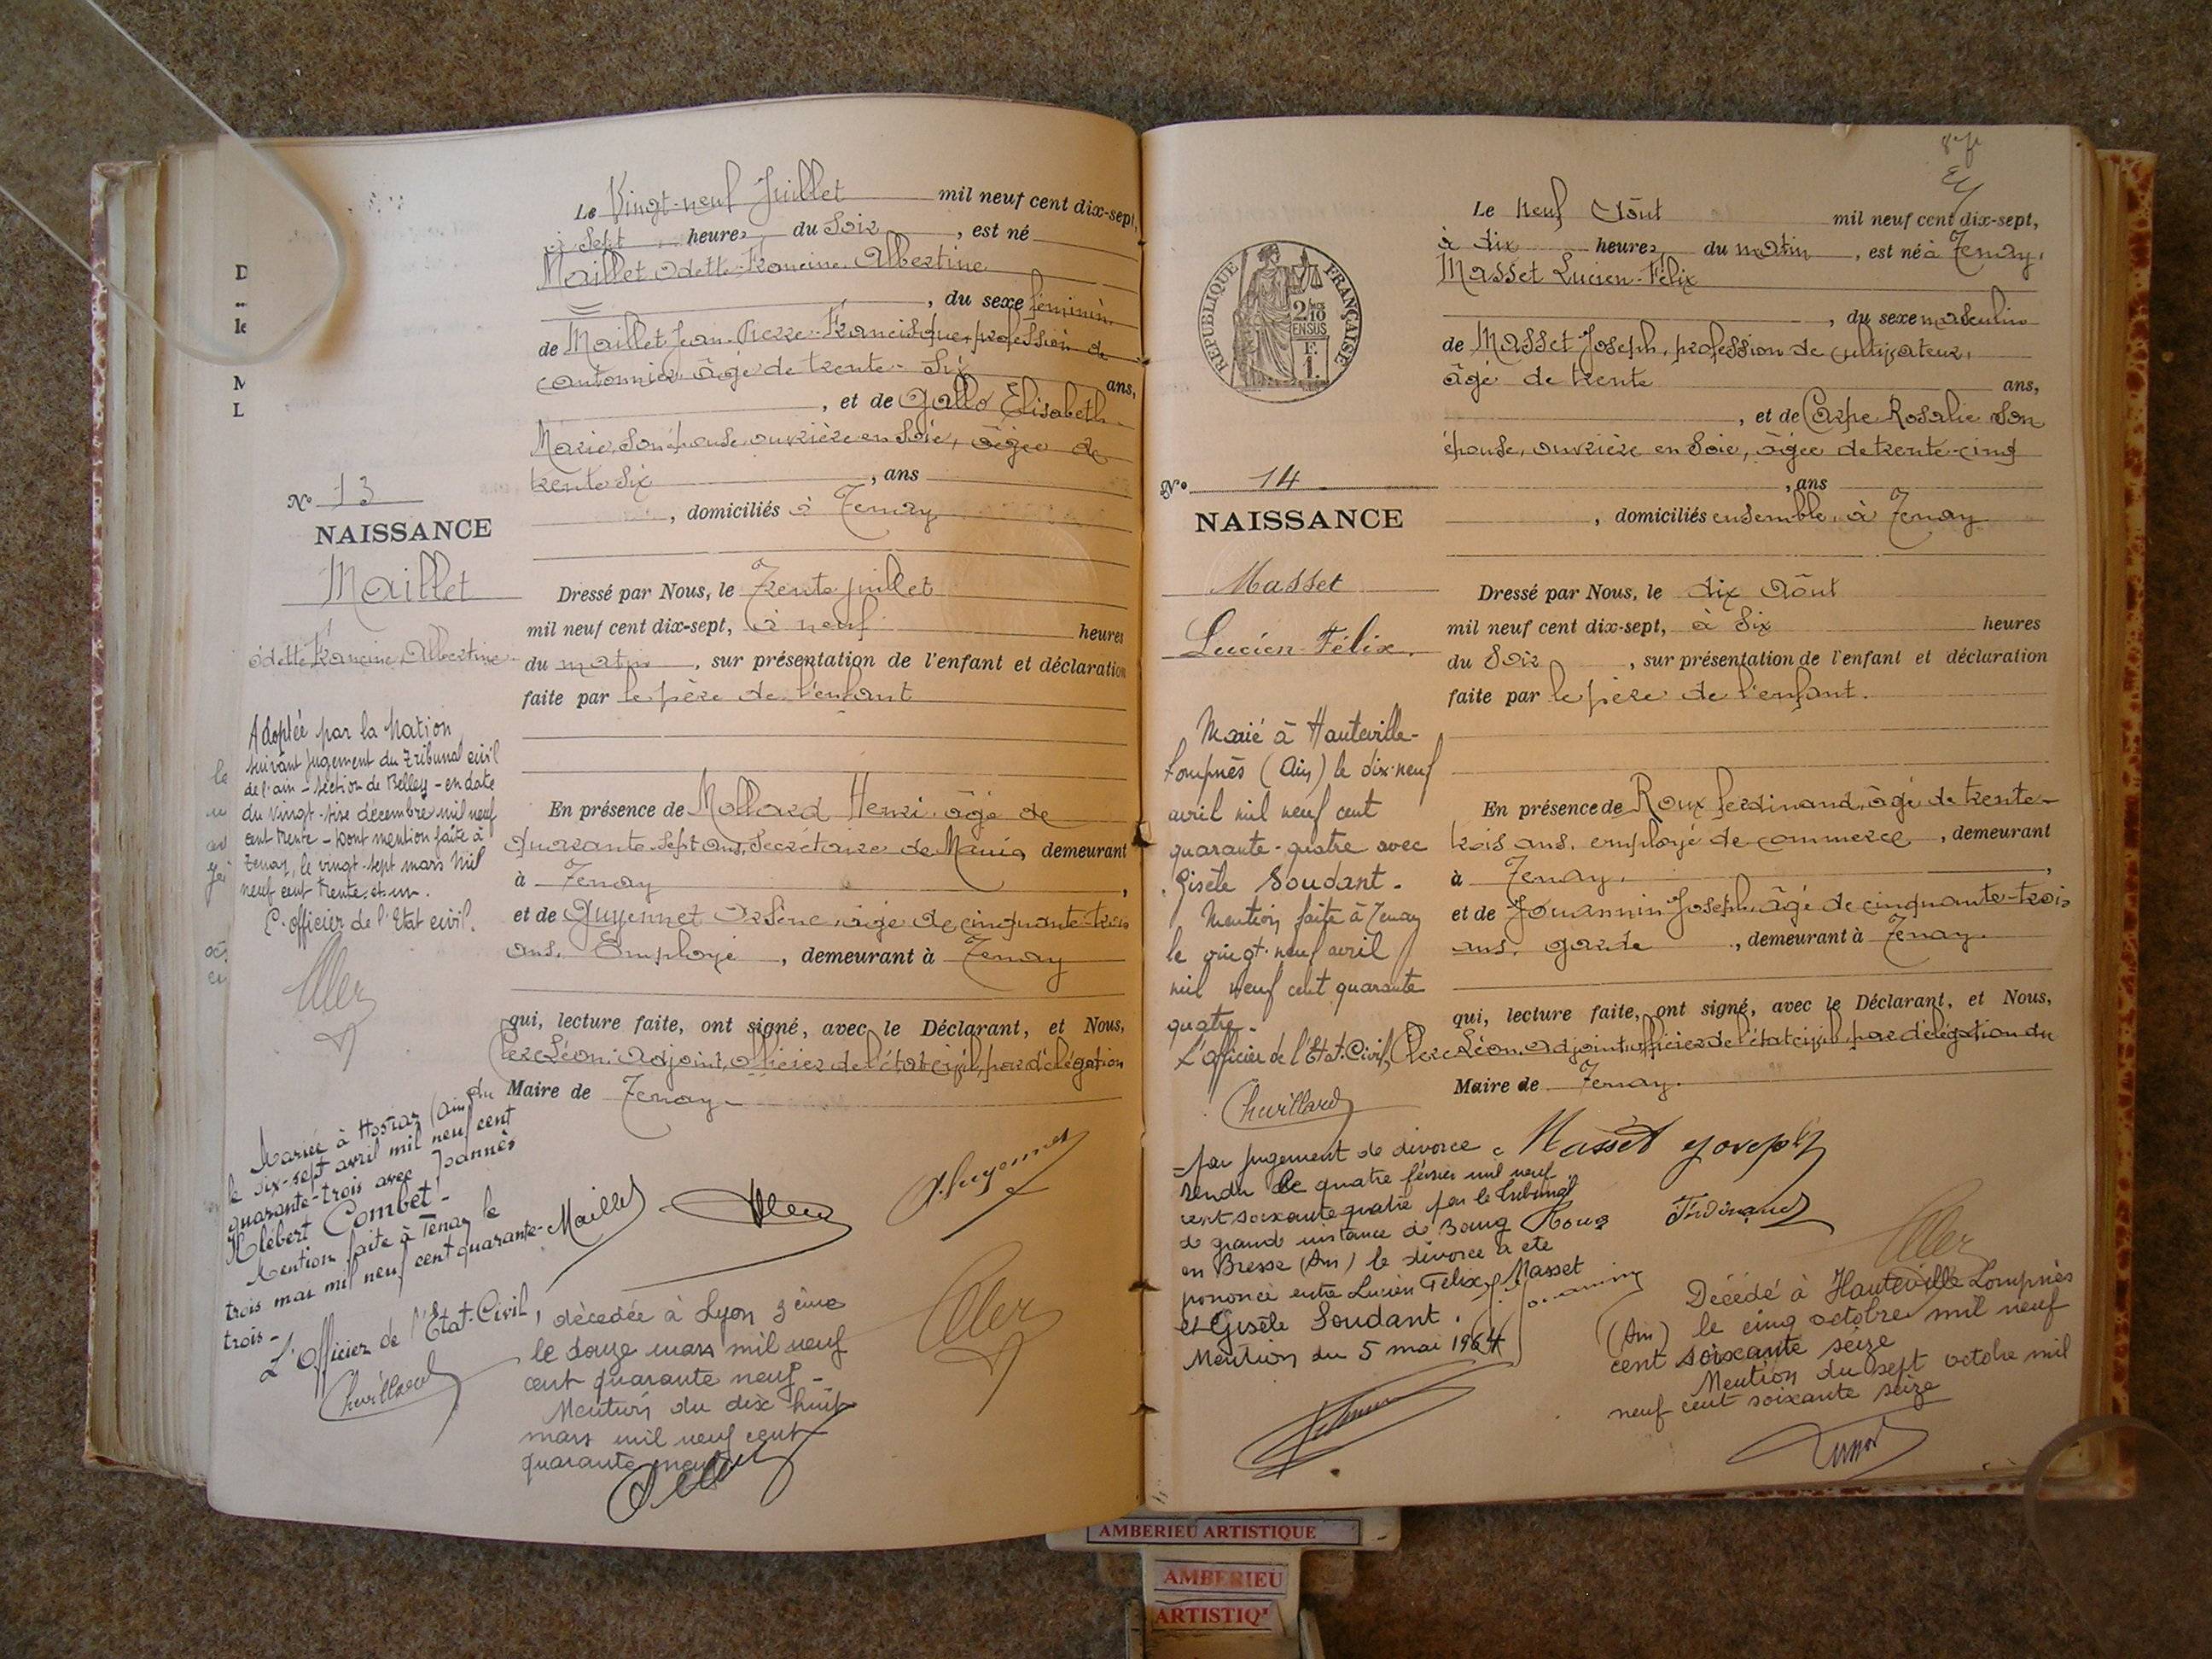 Le Vingt-neuf Juillet mil neuf cent dix-sept,
à Sept heures du Soir, est né
Maillet Odette Francine Albertine
, du sexe féminin
de Maillet Jean-Pierre-Francisque, profession de
cantonnier âgé de trente-Six ans,
, et de Gallo Elisabeth
Marie, Son épouse, ouvrière en Soie, âgée de
trente Six, ans
, domiciliés à Tenay
N° 13
NAISSANCE
Maillet
Odette Francine Albertine
Dressé par Nous, le Trente juillet
mil neuf cent dix-sept, à neuf heures
du matin, sur présentation de l'enfant et déclaration
faite par le père de l'enfant
En présence de Mollard Henri, âgé de
Quarante sept ans, Secrétaire de Mairie, demeurant
à Tenay,
et de Guyennet Arsène, âgé de cinquante-trois
ans, Employé, demeurant à Tenay
qui, lecture faite, ont signé, avec le Déclarant, et Nous,
Léon, adjoint, officier de l'état civil, par délégation
du Maire de Tenay
Adoptée par la Nation
suivant jugement du Tribunal civil
de l'ain - section de Belley - en date
du vingt-
décembre mil neuf
cent trente - Dont mention faite à
Tenay, le vingt-sept mars mil
neuf cent trente-et-un.
L'officier de l'Etat civil.
Mariée à Hostiaz (Ain)
le dix-sept avril mil neuf cent
quarante-trois avec Joannès
Klébert Combet -
Mention faite à Tenay le
trois mai mil neuf cent quarante-
trois -
L'Officier de l'Etat-Civil,
Chevillard
Maillet
décédée à Lyon 3ème
le douze mars mil neuf
cent quarante neuf -
Mention du dix huit
mars mil neuf cent
quarante neuf
Le neuf Août mil neuf cent dix-sept,
à dix heures du matin, est né à Tenay,
Masset Lucien-Félix
, du sexe masculin
de Masset Joseph, profession de cultivateur,
âgé de trente ans,
, et de Carpe Rosalie Son
épouse, ouvrière en Soie, âgée de trente-cinq
, ans
, domiciliés ensemble, à Tenay
REPUBLIQUE FRANÇAISE
2/10
EN SUS
F.
1.
N° 14
NAISSANCE
Masset
Lucien-Félix.
Dressé par Nous, le dix Août
mil neuf cent dix-sept, à Six heures
du Soir, sur présentation de l'enfant et déclaration
faite par le père de l'enfant.
En présence de Roux ferdinand, âgé de trente-
trois ans, employé de commerce, demeurant
à Tenay,
et de Jouannin Joseph, âgé de cinquante-trois
ans, garde, demeurant à Tenay.
qui, lecture faite, ont signé, avec le Déclarant, et Nous,
Léon, adjoint, officier de l'état civil, par délégation du
Maire de Tenay.
Marié à Hauteville-
Lompnès (Ain) le dix-neuf
avril mil neuf cent
quarante-quatre avec
Gisèle Soudant -
Mention faite à Tenay
le vingt-neuf avril
mil neuf cent quarante
quatre -
L'Officier de l'Etat-Civil,
Chevillard
Par jugement de divorce
rendu le quatre février mil neuf
cent soixante quatre par le tribunal
de grand instance de Bourg
en Bresse (Ain) le divorce a été
prononcé entre Lucien Félix Masset
et Gisèle Soudant.
Mention du 5 mai 1964
Masset Joseph
Roux Ferdinand
Décédé à Hauteville Lompnès
(Ain) le cinq octobre mil neuf
cent soixante seize
Mention du sept octobre mil
neuf cent soixante seize
AMBERIEU ARTISTIQUE
AMBERIEU
ARTISTIQ